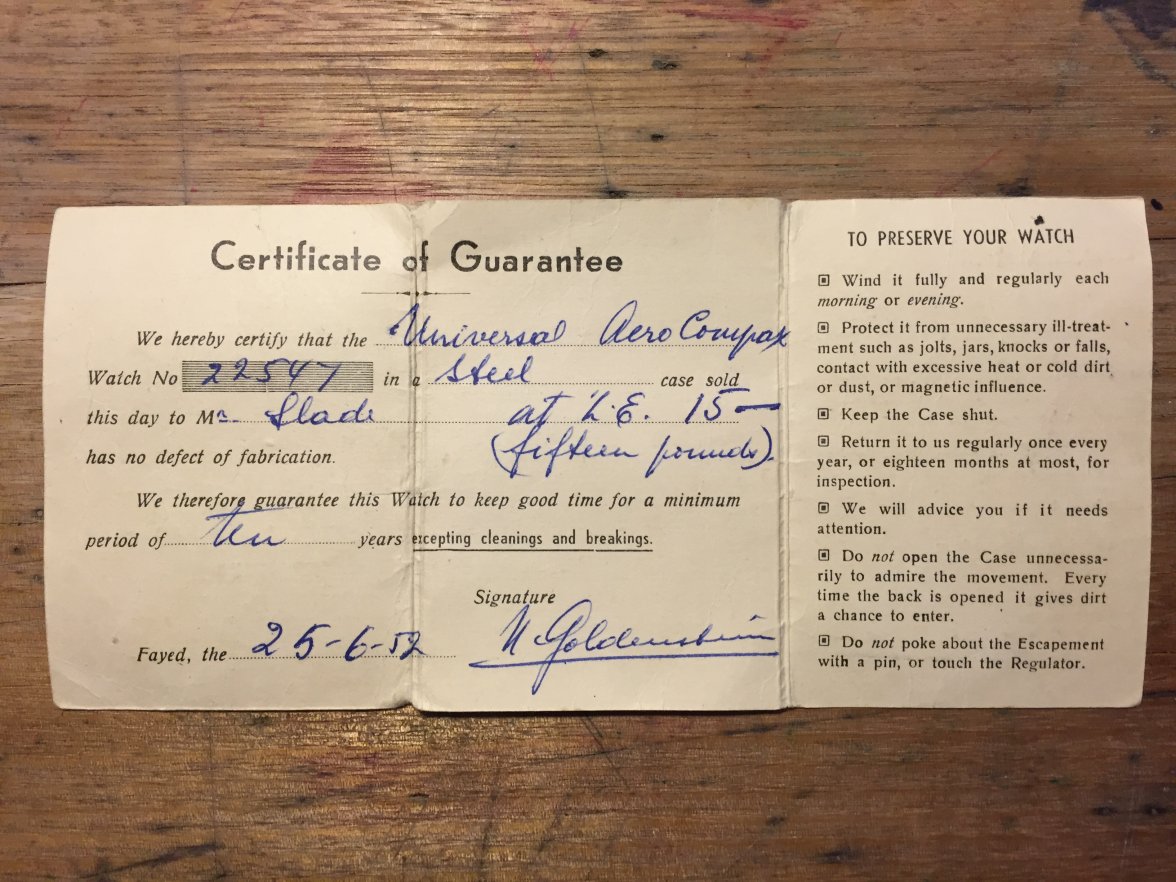 Certificate of Guarantee
We hereby certify that the Universal Aero Compax
Watch No 22547 in a Steel case sold
this day to Mr. Slade at L.E. 15—
has no defect of fabrication. (fifteen pounds).
We therefore guarantee this Watch to keep good time for a minimum
period of ten years excepting cleanings and breakings.
Signature
Fayed, the 25-6-52 N. Goldenstein
TO PRESERVE YOUR WATCH
Wind it fully and regularly each
morning or evening.
Protect it from unnecessary ill-treat-
ment such as jolts, jars, knocks or falls,
contact with excessive heat or cold dirt
or dust, or magnetic influence.
Keep the Case shut.
Return it to us regularly once every
year, or eighteen months at most, for
inspection.
We will advice you if it needs
attention.
Do not open the Case unnecessa-
rily to admire the movement. Every
time the back is opened it gives dirt
a chance to enter.
Do not poke about the Escapement
with a pin, or touch the Regulator.